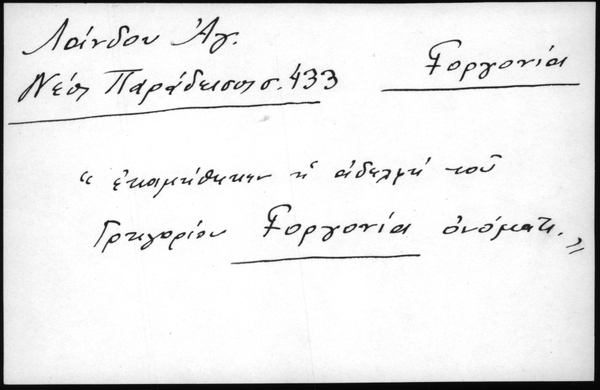 Λάνδου Ἀγ.
Νέος Παράδεισος σ. 433
Γοργονία
"ἐκοιμήθηκεν ἡ ἀδελφή τοῦ
Γρηγορίου Γοργονία ὀνόματι."